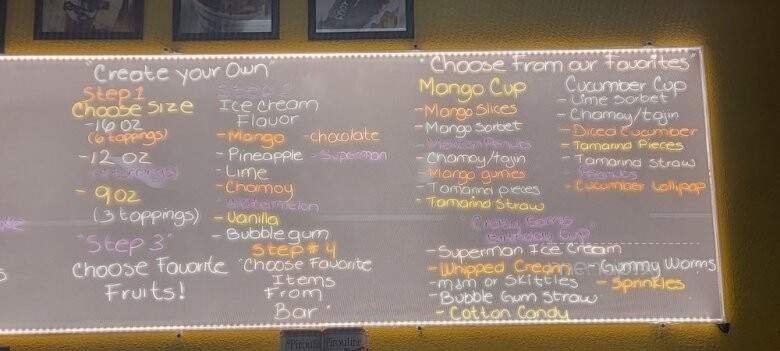 "Create your Own"
Step 1
Choose Size
-16 oz
(6 toppings)
-12 oz
- 9oz
(3 toppings)
"Step 3"
Choose Favorite
Fruits!
Ice Cream
Flavor
-Mango -chocolate
-Pineapple -Superman
-Lime
-Chamoy
-Watermelon
-Vanilla
-Bubblegum
Step #4
"Choose Favorite
Items
From
Bar"
"Choose From our Favorites"
Mango Cup
-Mango Slices
-Mango Sorbet
-Mexican Peanuts
-Chamoy/tajin
-Mango gumies
-Tamarind pieces
-Tamarind Straw
Cucumber Cup
-Lime Sorbet
-Chamoy/tajin
-Diced Cucumber
-Tamarind Pieces
-Tamarind Straw
-Peanuts
-Cucumber Lollypop
Birthday Cup
-Superman Ice Cream
-Whipped Cream -Gummy Worms
-m&m or Skittles -Sprinkles
-Bubble Gum Straw
-Cotton Candy